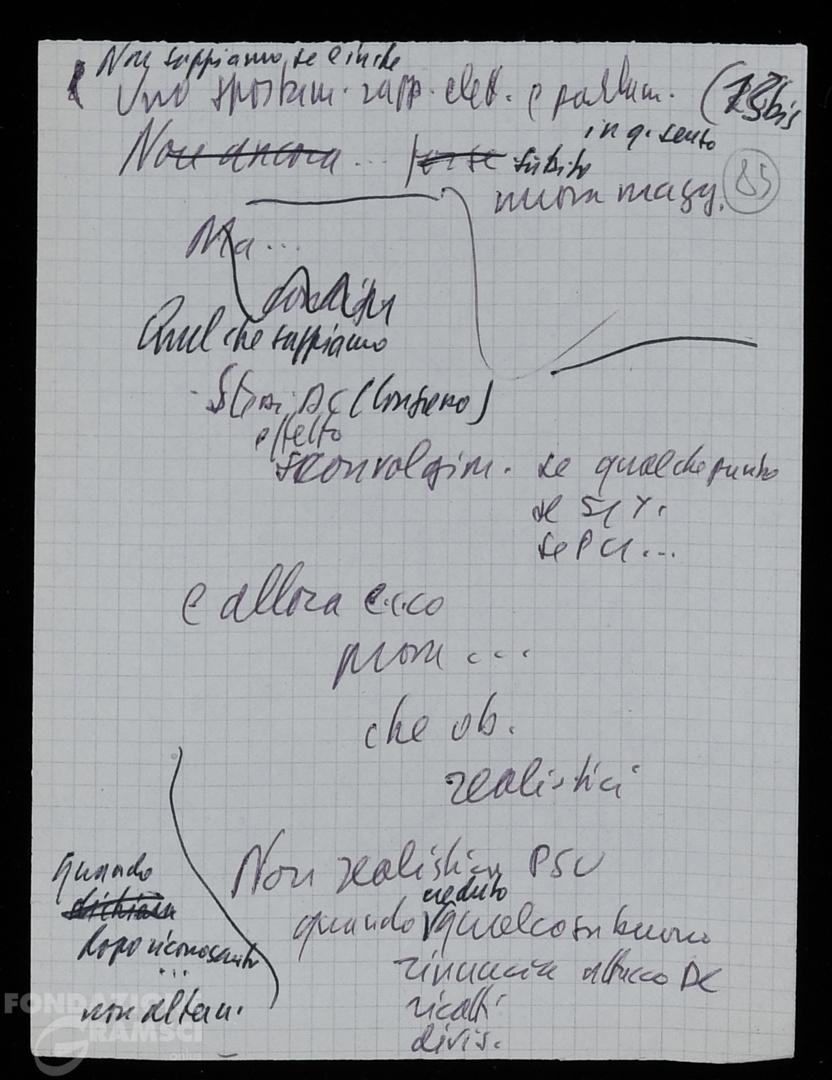 Non sappiamo se
Uno spostam. rapp. elett. e parlam. (15bis
in q. senso
Non ancora ... forse subito
nuova magg.
85
Ma...
Quel che sappiamo
effetto
sconvolgim. se qualche punto
se PCI...
e allora ecco
prom ...
che ob.
realistici
Non realistica PSU
quando creduto qualcosa buono
rinuncia attacco DC
ricatti
divis.
quando
dopo riconosciuto
...
non altern.
FONDAZIONE
GRAMSCI